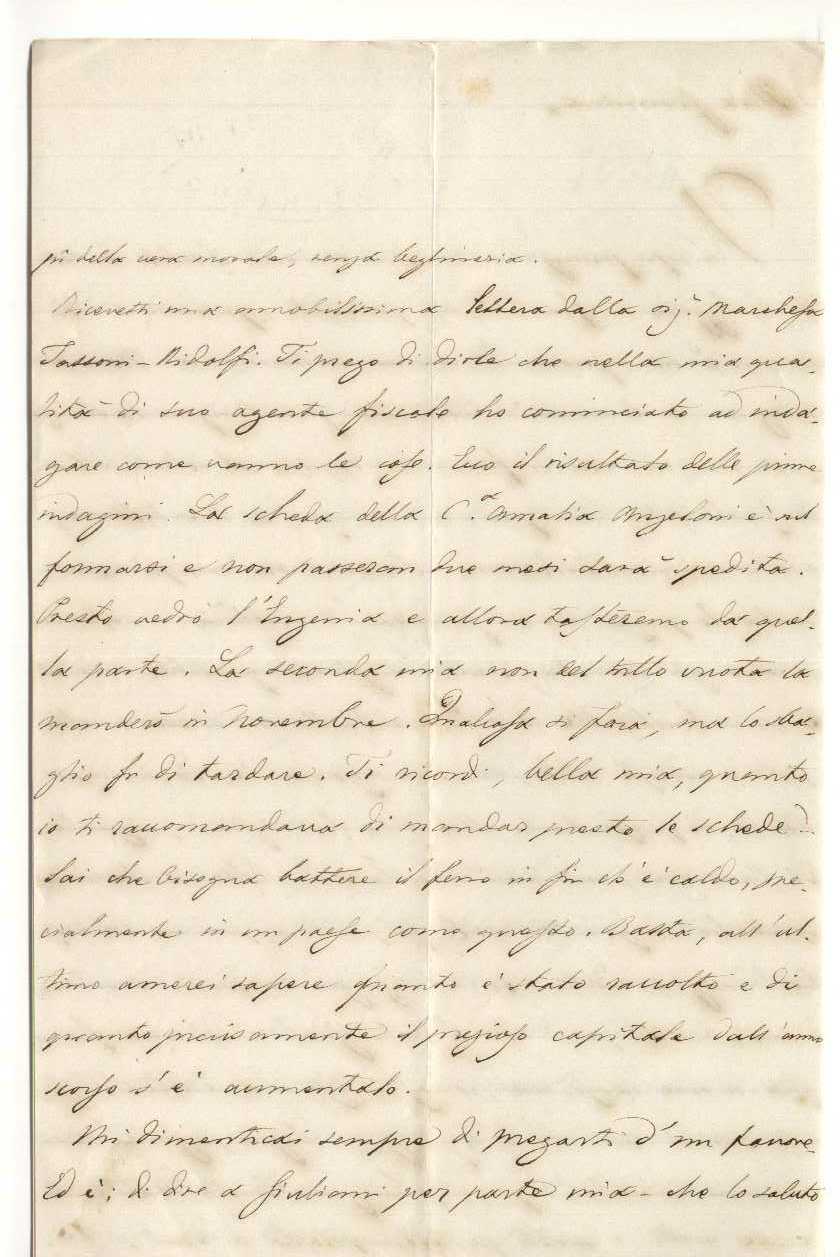 pî della vera morale, senza beghineria.
Ricevetti una amabilissima lettera dalla sig.ª Marchesa
Tassoni-Ridolfi. Ti prego di dirle che nella mia qua-
lità di suo agente fiscale ho cominciato ad inda-
gare come vanno le cose. Ecco il risultato delle prime
indagini. La scheda della C.ª Amalia Angeloni è sul
formarsi e non passeran due mesi sarà spedita.
Presto vedrò l'Eugenia e allora tasteremo da quel-
la parte. La seconda mia non del tutto vuota la
manderò in Novembre. Qualcosa si farà, ma lo sba-
glio fu di tardare. Ti ricordi, bella mia, quanto
io ti raccomandava di mandar presto le schede?
Sai che bisogna battere il ferro in fin ch'è caldo, spe-
cialmente in un paese come questo. Basta, all'ul-
timo amerei sapere quanto è stato raccolto e di
quanto precisamente il prezioso capitale dall'anno
scorso s'è aumentato.
Mi dimenticai sempre di pregarti d'un favore.
Ed è; di dire a Giuliani per parte mia - che lo saluto